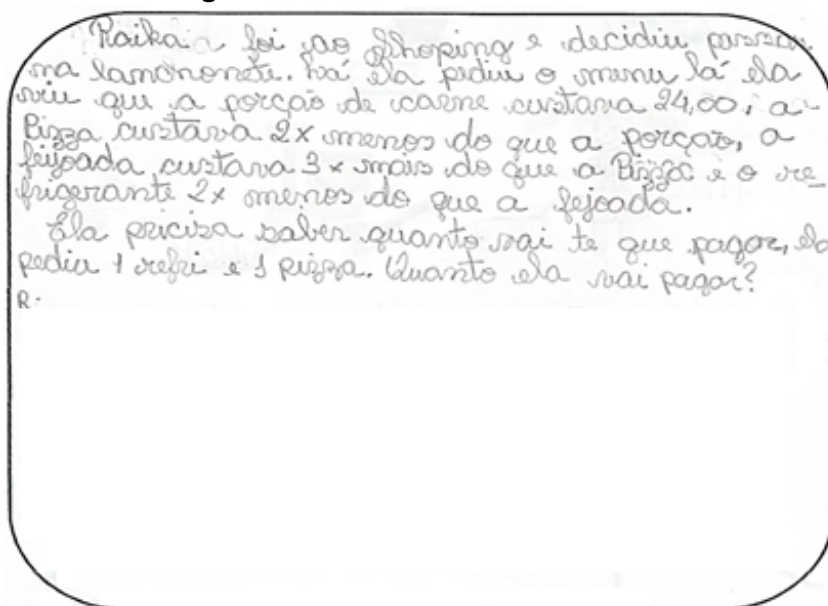 Raika foi ao Shoping e decidiu passar
na lanchonete. Lá ela pediu o menu lá ela
viu que a porção de carne custava 24,00, a
Pizza custava 2x menos do que a porção, a
feijoada custava 3x mais do que a Pizza e o re_
frigerante 2x menos do que a fejoada.
Ela preciza saber quanto vai te que pagar, ela
pediu 1 refri e 1 pizza. Quanto ela vai pagar?
R.